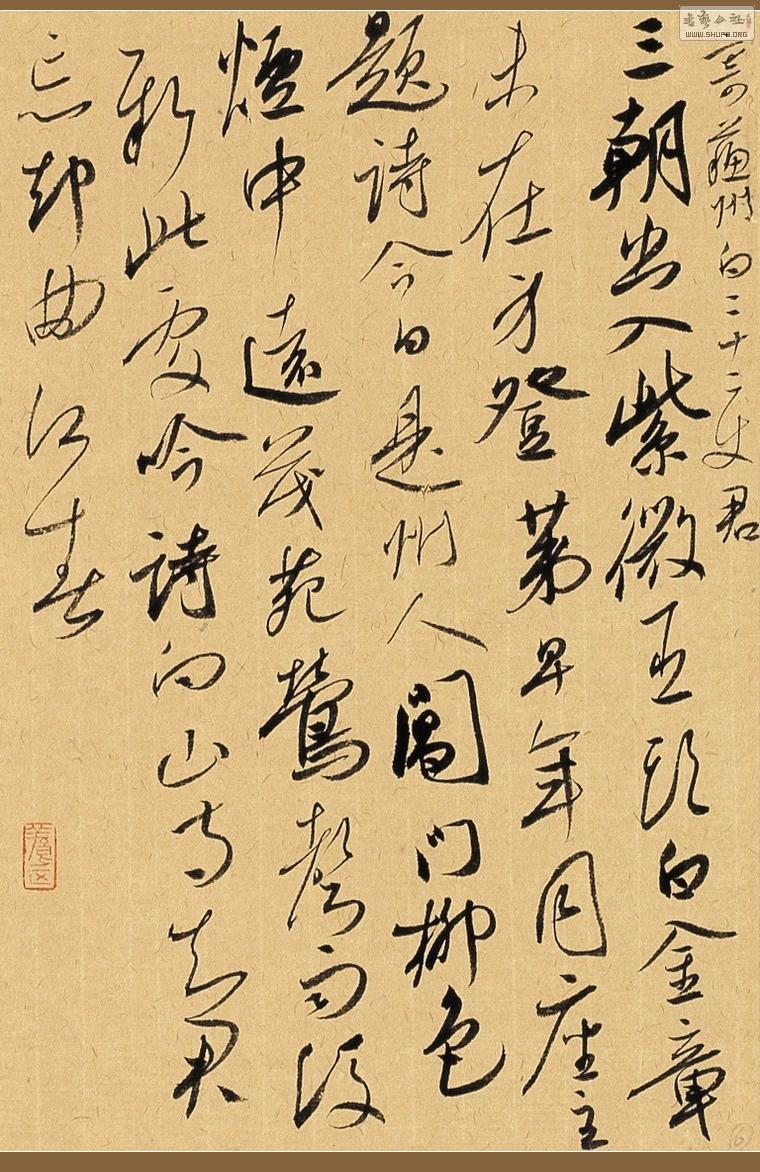 書藝公社
WWW.SHUFA.ORG
寄蘇州白二十二使君
三朝出入紫微臣頭白金章
未在身登第早年同座主
題詩今日是州人閶門柳色
煙中遠茂苑鶯聲雨後
新此處吟詩向山寺知君
忘却曲江春